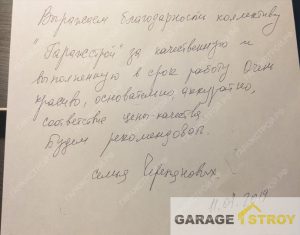 Выражаем благодарность коллективу
"Гаражстрой" за качественную и
выполненную в срок работу Очень
красиво, основательно, аккуратно,
соответствие цены-качества.
Будем рекомендовать.
семья Черепановых
11.07.2019
GARAGE STROY